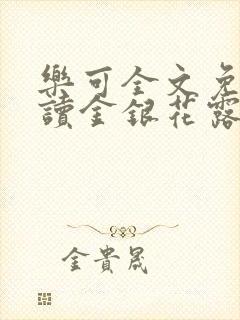 樂可全文免
讀金銀花露
金貴晟